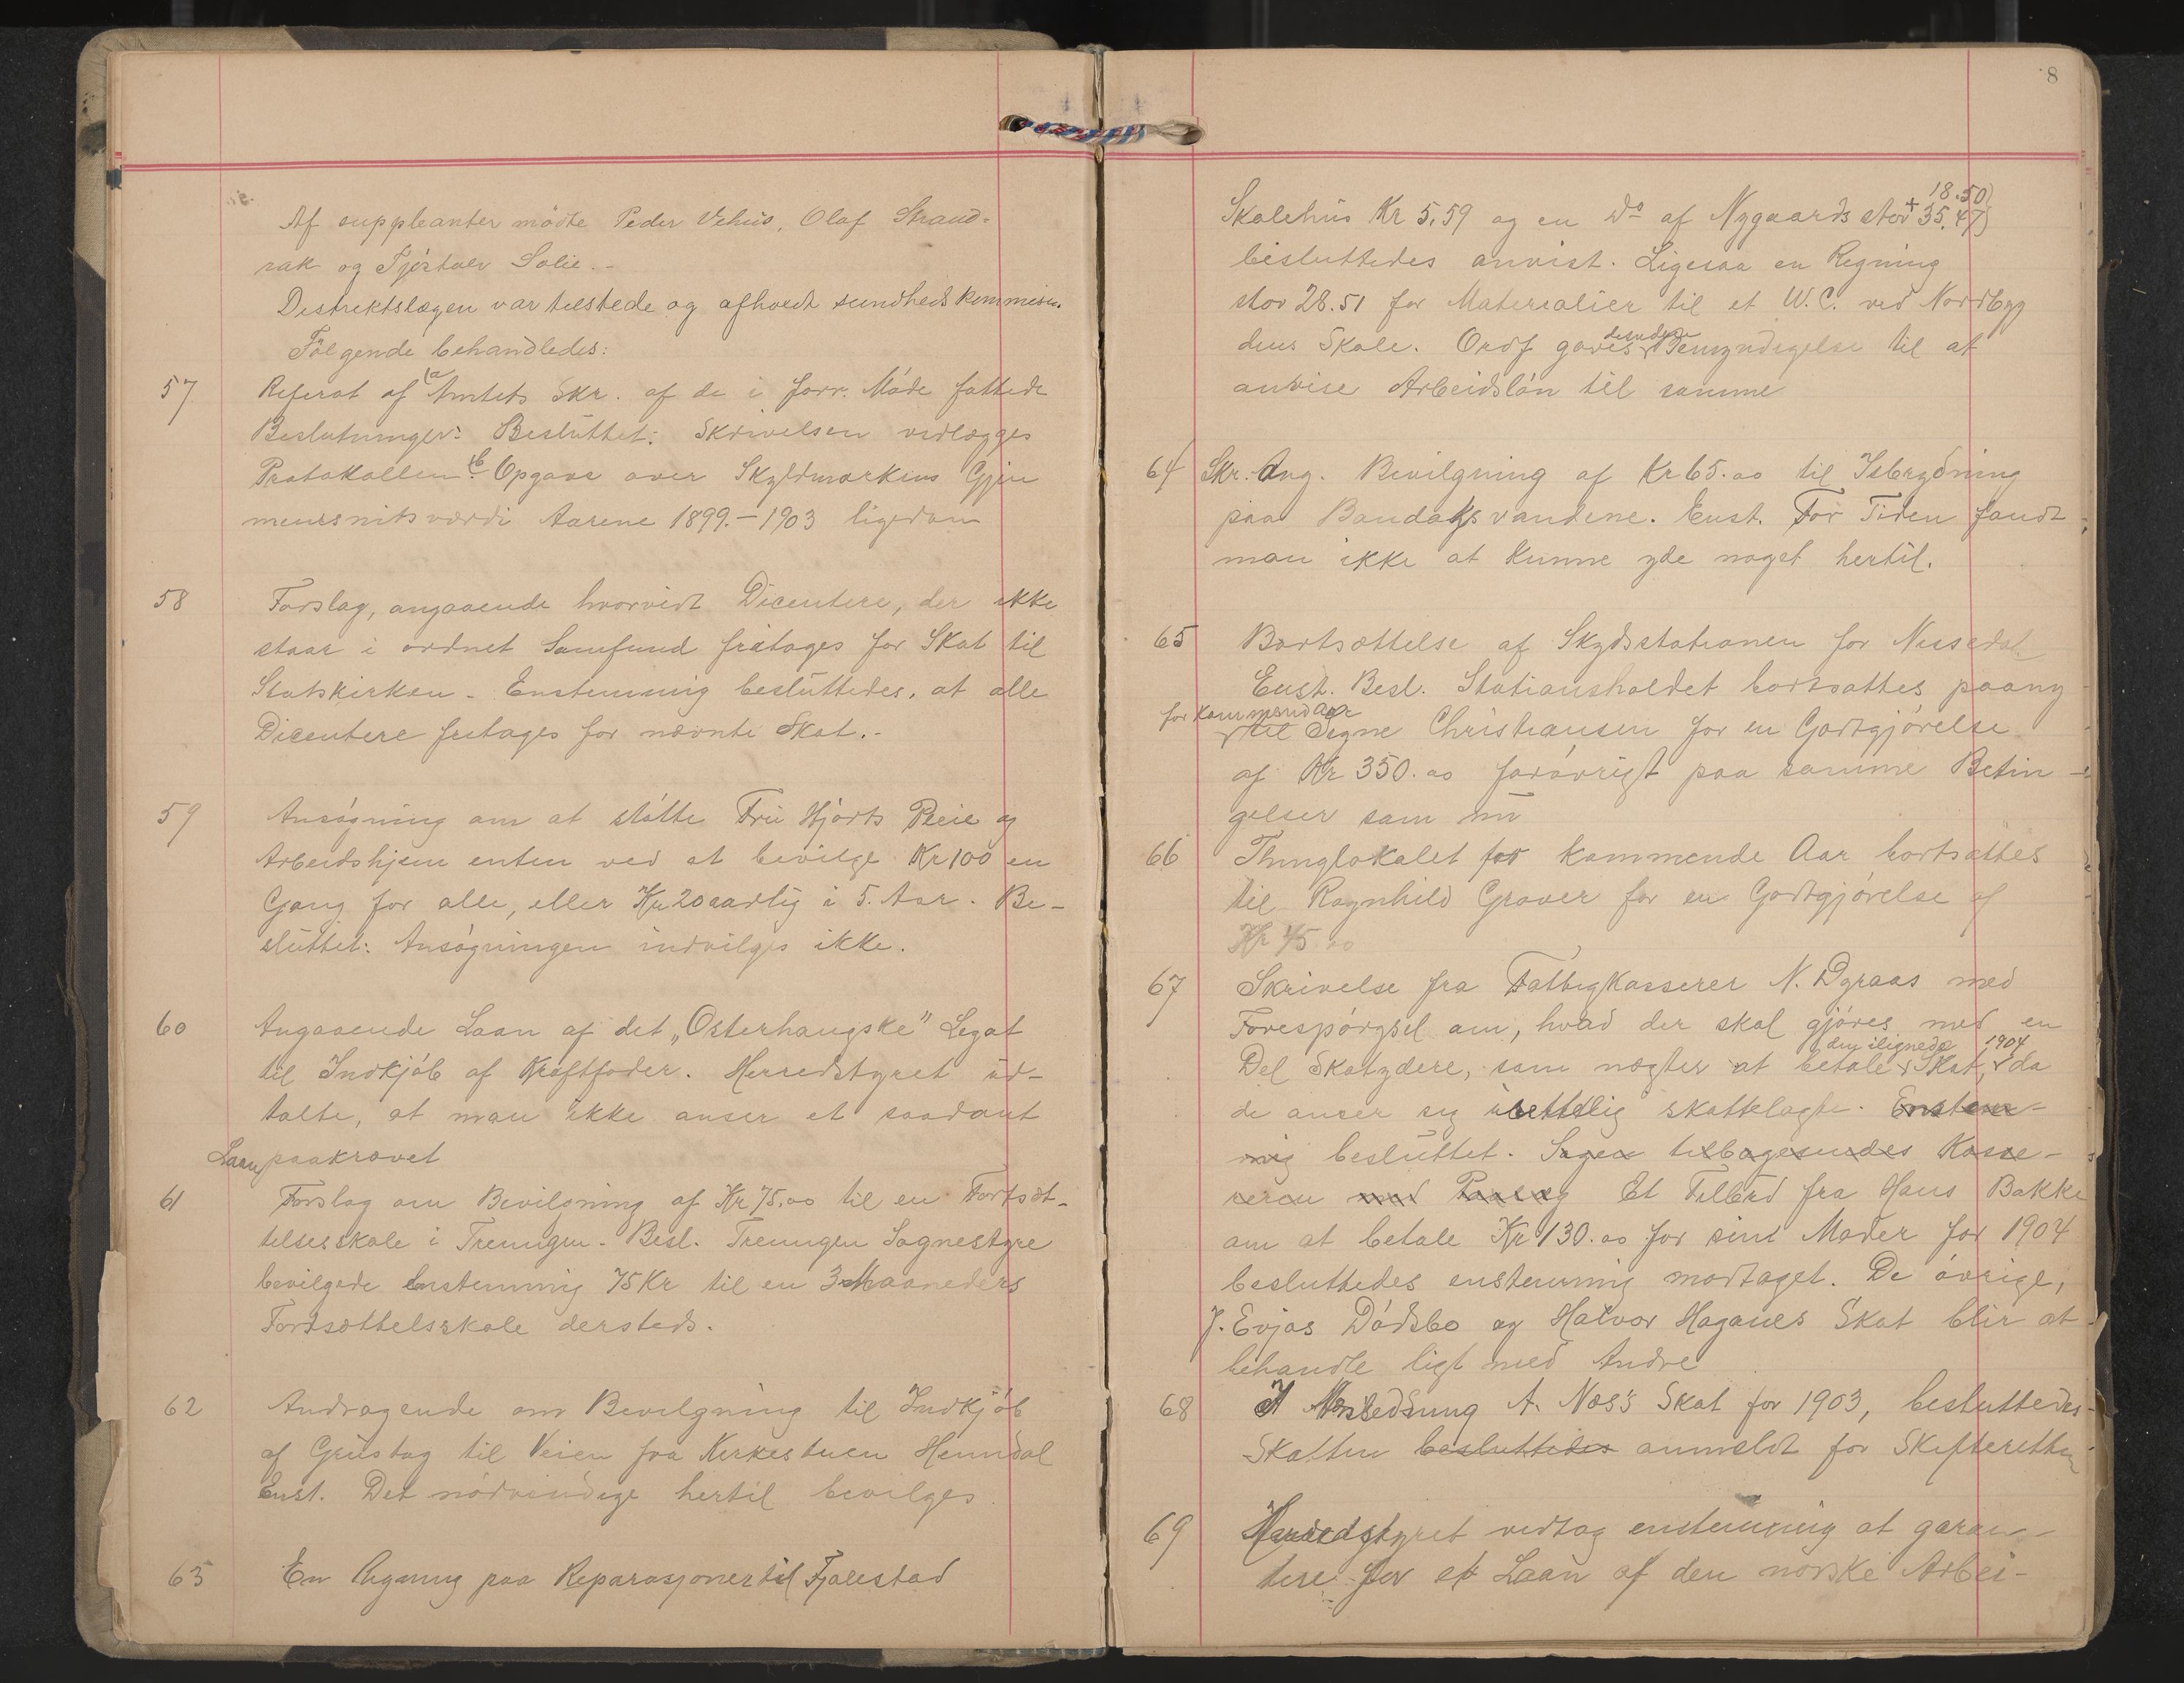 Af suppleanter mødte Peder Vehus, Olaf Straud-
rak og Tjöstolv Solie.-
Destriktslægen var tilstede og afholdt sundhedskommision.
Følgende behandledes:
57 Referat af (a Amtets Skr. af de i forr. Møde fattede
Beslutninger: Besluttet: Skrivelsen vedlægges
Protokollen. (b Opgave over Skyldmarkens Gjen
nemsnitsværdi Aarene 1899.-1903 ligedan
58 Forslag, angaaende hvorvidt Dicentere, der ikke
staar i ordnet Samfund fritages for Skat til
Statskirken - Enstemmig besluttedes, at alle
Dicentere fritages for nævnte Skat.-
59 Ansøgning om at støtte Fru Hjorts Pleie og
Arbeidshjem enten ved at bevilge Kr 100 en
Gang for alle, eller Kr 20 aarlig i 5. Aar. Be-
sluttet: Ansøgningen indvilges ikke.
60 Angaaende Laan af det "Osterhaugske" Legat
til Indkjøb af Kraftfoder. Herredstyret ud-
talte, at man ikke anser et saadant
Laan paakrævet
61 Forslag om Bevilgning af Kr 75,00 til en Fortsæt-
telsesskole i Treungen - Besl. Treungen Sognestyre
bevilgede Enstemmig 75 Kr til en 3 Maaneders
Fortsættelsskole dersteds.
62 Andragende om Bevilgning til Indkjøb
af Grustag til Veien fra Kirkestuen Hemndal
Enst. Det nødvendige hertil bevilges.
63 En Regning paa Reparasjoner til Fjalestad
8
18.50)
Skolehus Kr 5,59 og en Do af Nygaard stor + 35.47)
besluttedes anvist. Ligesaa en Regning
stor 28.51 for Materialier til et W.C. ved Nordbyg
dens Skole. Ordf gaves desuden Bemyndigelse til at
anvise Arbeidsløn til samme
64 Skr. Ang. Bevilgning af Kr 65.00 til Isbrydning
paa Bandaksvandene. Enst. For Tiden fandt
man ikke at kunne yde noget hertil.
65 Bortsættelse af Skydsstationen for Nissedal
Enst. Besl. Stationsholdet bortsattes paany
for kommende Aar
til Signe Christiansen for en Godtgjørelse
af Kr 350.00 forøvrigt paa samme Betin-
gelser som nu
66 Thinglokalet for kommende Aar bortsættes
til Ragnhild Graver for en Godtgjørelse af
Kr 45.00
67 Skrivelse fra Fattigkasserer N. Dyraas med
Forespørgsel om, hvad der skal gjøres med en
den ilignede 1904
Del Skatydere, som nægter at betale Skat, da
de anser sig urettelig skattelagte. Enstem-
mig besluttet. Sagen tilbagesendes Kasse-
reren med Paalæg Et Tilbud fra Hans Bakke
om at betale Kr 130.00 for sin Moder for 1904
besluttedes enstemmig modtaget. De øvrige,
J. Evjas Dødsbo og Halvor Haganes Skat blir at
behandle ligt med Andre
68 A. Næs's Skat for 1903, besluttedes
Skatten besluttedes anmeldt for Skifteretten
69 Herredstyret vedtog enstemmig at garan-
tere for et Laan af den norske Arbei-